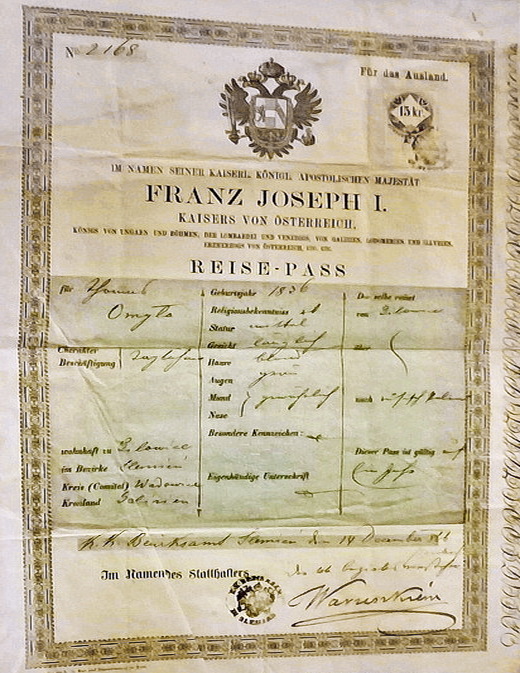 N 2168
Für das Ausland.
15 kr.
IM NAMEN SEINER KAISERL. KÖNIGL. APOSTOLISCHEN MAJESTÄT
FRANZ JOSEPH I.
KAISERS VON ÖSTERREICH,
KÖNIGS VON UNGARN UND BÖHMEN, DER LOMBARDEI UND VENEDIGS, VON GALIZIEN, LODOMERIEN UND ILLYRIEN,
ERZHERZOGS VON ÖSTERREICH, ETC. ETC.
REISE-PASS
für Thomas
Omyla
Charakter
Beschäftigung
wohnhaft zu
im Bezirke Slemień
Kreis (Comitat) Wadowice
Kronland Galizien
Geburtsjahr 1836
Religionsbekenntniss
Statur mittel
Gesicht länglich
Haare blond
Augen grau
Mund
Nase
Besondere Kennzeichen:
Eigenhändige Unterschrift
Derselbe reiset
von
über
nach
Dieser Pass ist gültig auf
Ein Jahr
K. K. Bezirksamt Slemień den 14 December
Im Namen des Statthalters
K.K. BEZIRKSAMT